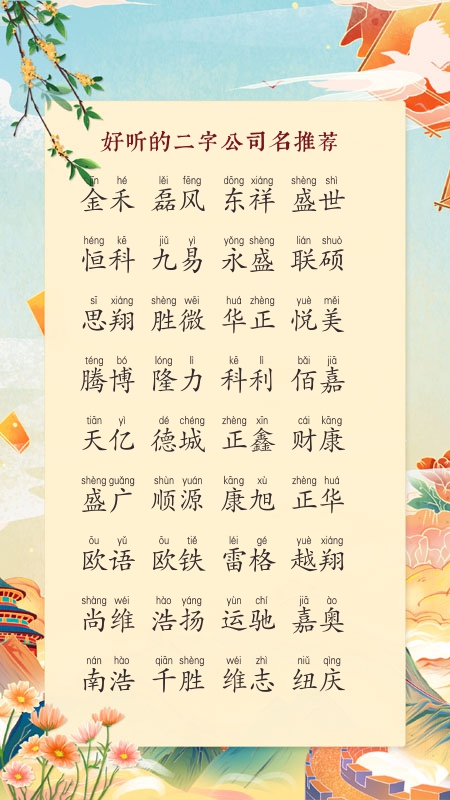 好听的二字公司名推荐
jīn hé lěi fēng dōng xiáng shèng shì
金禾 磊风 东祥 盛世
héng kē jiǔ yì yǒng shèng lián shuò
恒科 九易 永盛 联硕
sī xiáng shèng wēi huá zhèng yuè měi
思翔 胜微 华正 悦美
téng bó lóng lì kē lì bǎi jiā
腾博 隆力 科利 佰嘉
tiān yì dé chéng zhèng xīn cái kāng
天亿 德城 正鑫 财康
shèng guǎng shùn yuán kāng xù zhèng huá
盛广 顺源 康旭 正华
ōu yǔ ōu tiě léi gé yuè xiáng
欧语 欧铁 雷格 越翔
shàng wéi hào yáng yùn chí jiā ào
尚维 浩扬 运驰 嘉奥
nán hào qiān shèng wéi zhì niǔ qìng
南浩 千胜 维志 纽庆